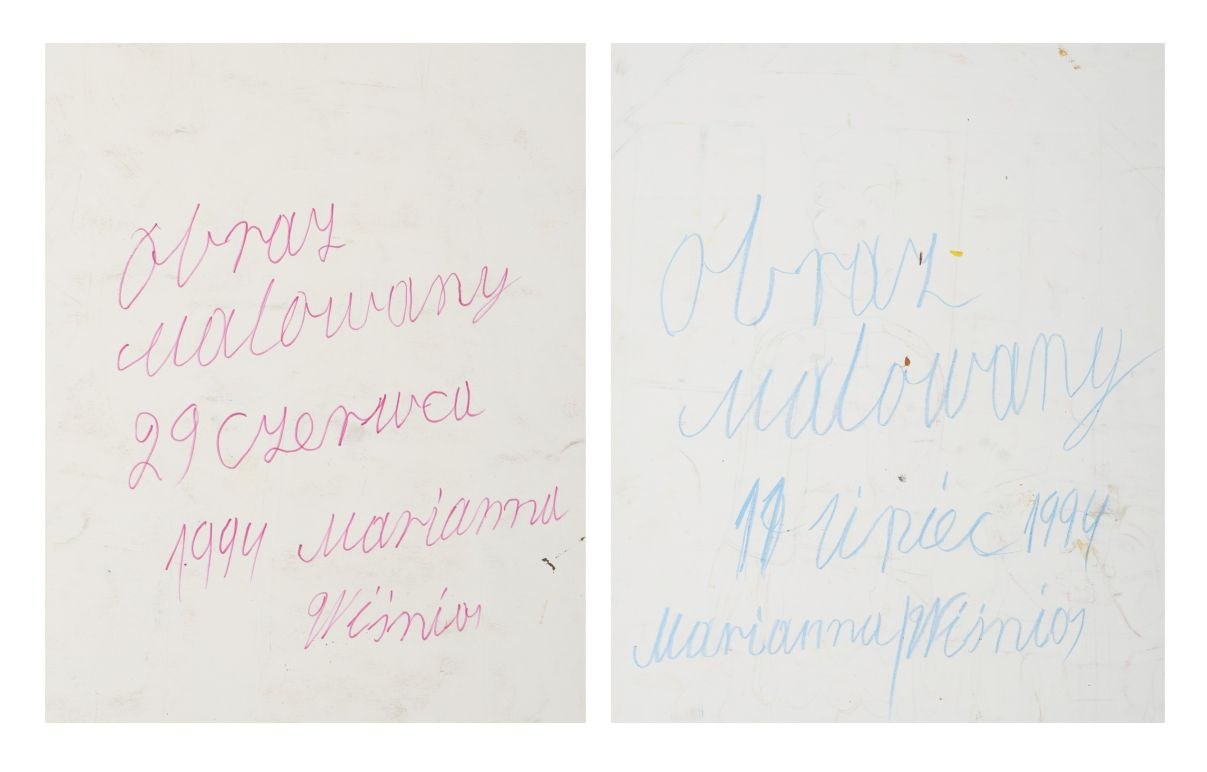 Obraz
Malowany
29 Czerwca
1994 Marianna
Wiśnios
Obraz
malowany
lipiec 1994
Marianna Wiśnios